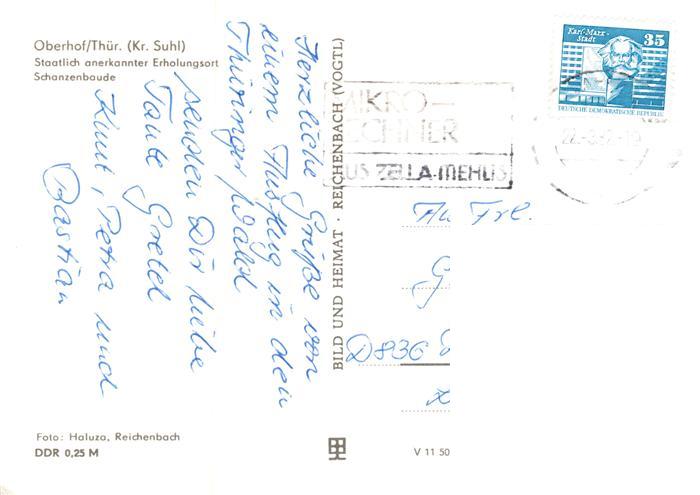 Oberhof/Thür. (Kr. Suhl)
Staatlich anerkannter Erholungsort
Schanzenbaude
Herzliche Grüße von
einem Ausflug in den
Thüringer Wald
senden Dir liebe
Tante Gretel
Knut, Petra und
Bastian
Foto: Haluza, Reichenbach
DDR 0,25 M
BILD UND HEIMAT · REICHENBACH (VOGTL)
V 11 50
Karl-Marx-
Stadt
35
DEUTSCHE DEMOKRATISCHE REPUBLIK
MIKRO-
ECHNER
US ZELLA-MEHLIS
An Frl.
G
D836